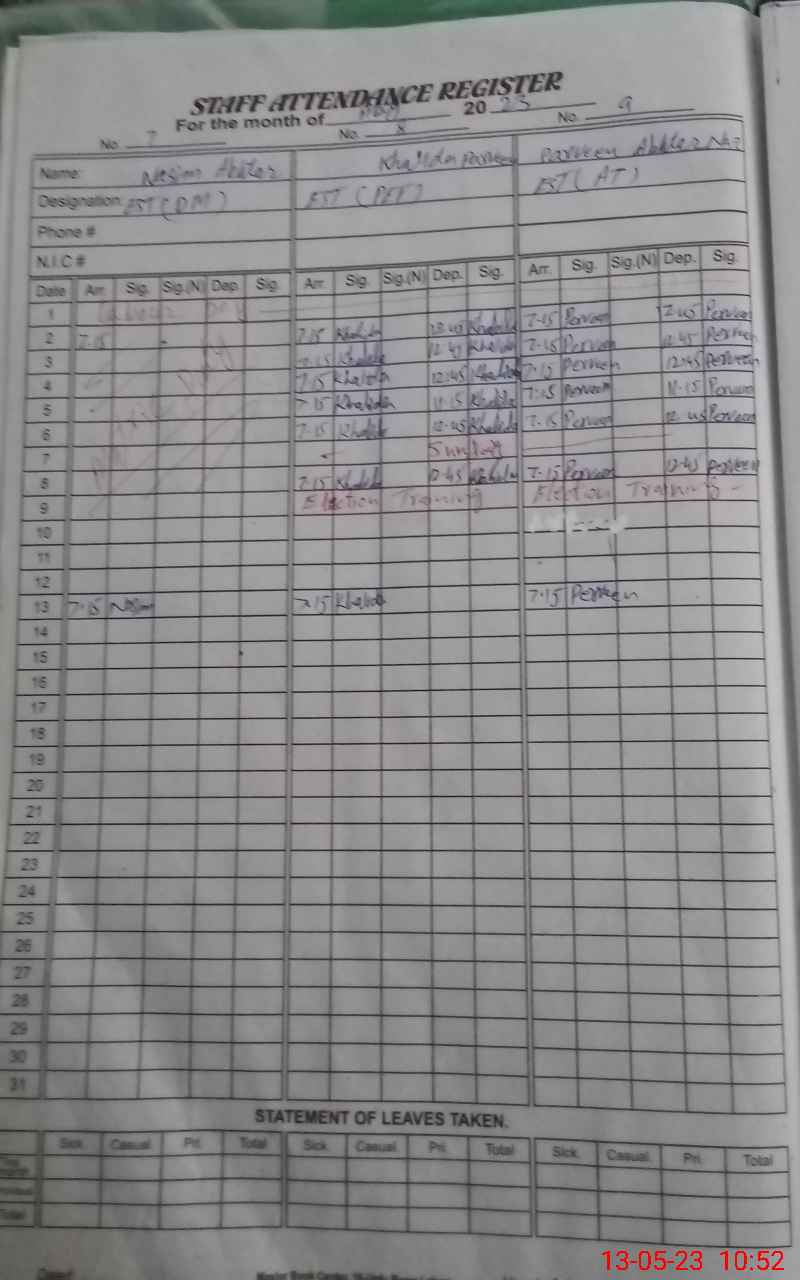 STAFF ATTENDANCE REGISTER
For the month of May 20 23
No. 7 No. 8 No. 9
Name: Nasim Akhtar Khalida Parveen Parveen Akhter
Designation: EST (DM) EST (PET) EST (AT)
Phone #
N.I.C #
Date Arr. Sig. Sig.(N) Dep. Sig. Arr. Sig. Sig.(N) Dep. Sig. Arr. Sig. Sig.(N) Dep. Sig.
1 Labour Day
2 7-15 7-15 Khalida 12-45 Khalida 7-15 Perveen 12-45 Perveen
3 7-15 Khalida 12-45 Khalida 7-15 Perveen 12-45 Perveen
4 7-15 Khalida 12-45 Khalida 7-15 Perveen 12-45 Perveen
5 7-15 Khalida 11-15 Khalida 7-15 Perveen 11-15 Perveen
6 7-15 Khalida 12-45 Khalida 7-15 Perveen 12-45 Perveen
7 Sunday
8 7-15 Khalida 12-45 Khalida 7-15 Perveen 12-45 Perveen
9 Election Training Election Training
10
11
12
13 7-15 Nasim 7-15 Khalida 7-15 Perveen
14
15
16
17
18
19
20
21
22
23
24
25
26
27
28
29
30
31
STATEMENT OF LEAVES TAKEN.
Sick. Casual. Pri. Total Sick. Casual. Pri. Total Sick. Casual. Pri. Total
Total
13-05-23 10:52